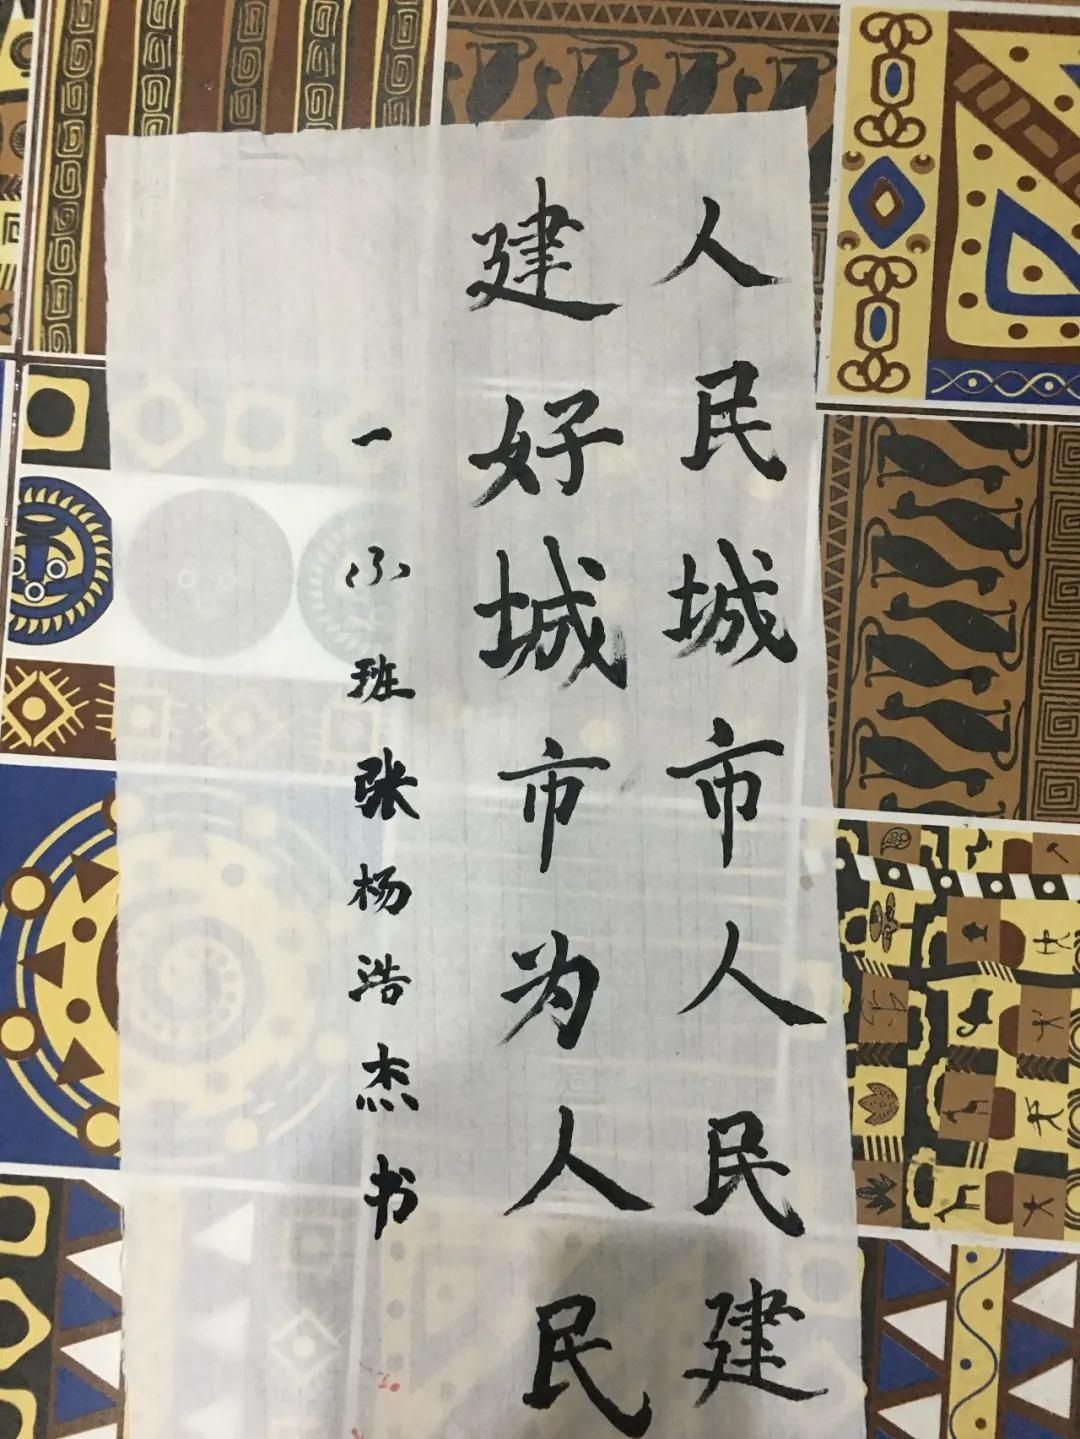 人民城市人民建
建好城市为人民
一小班张杨浩杰书